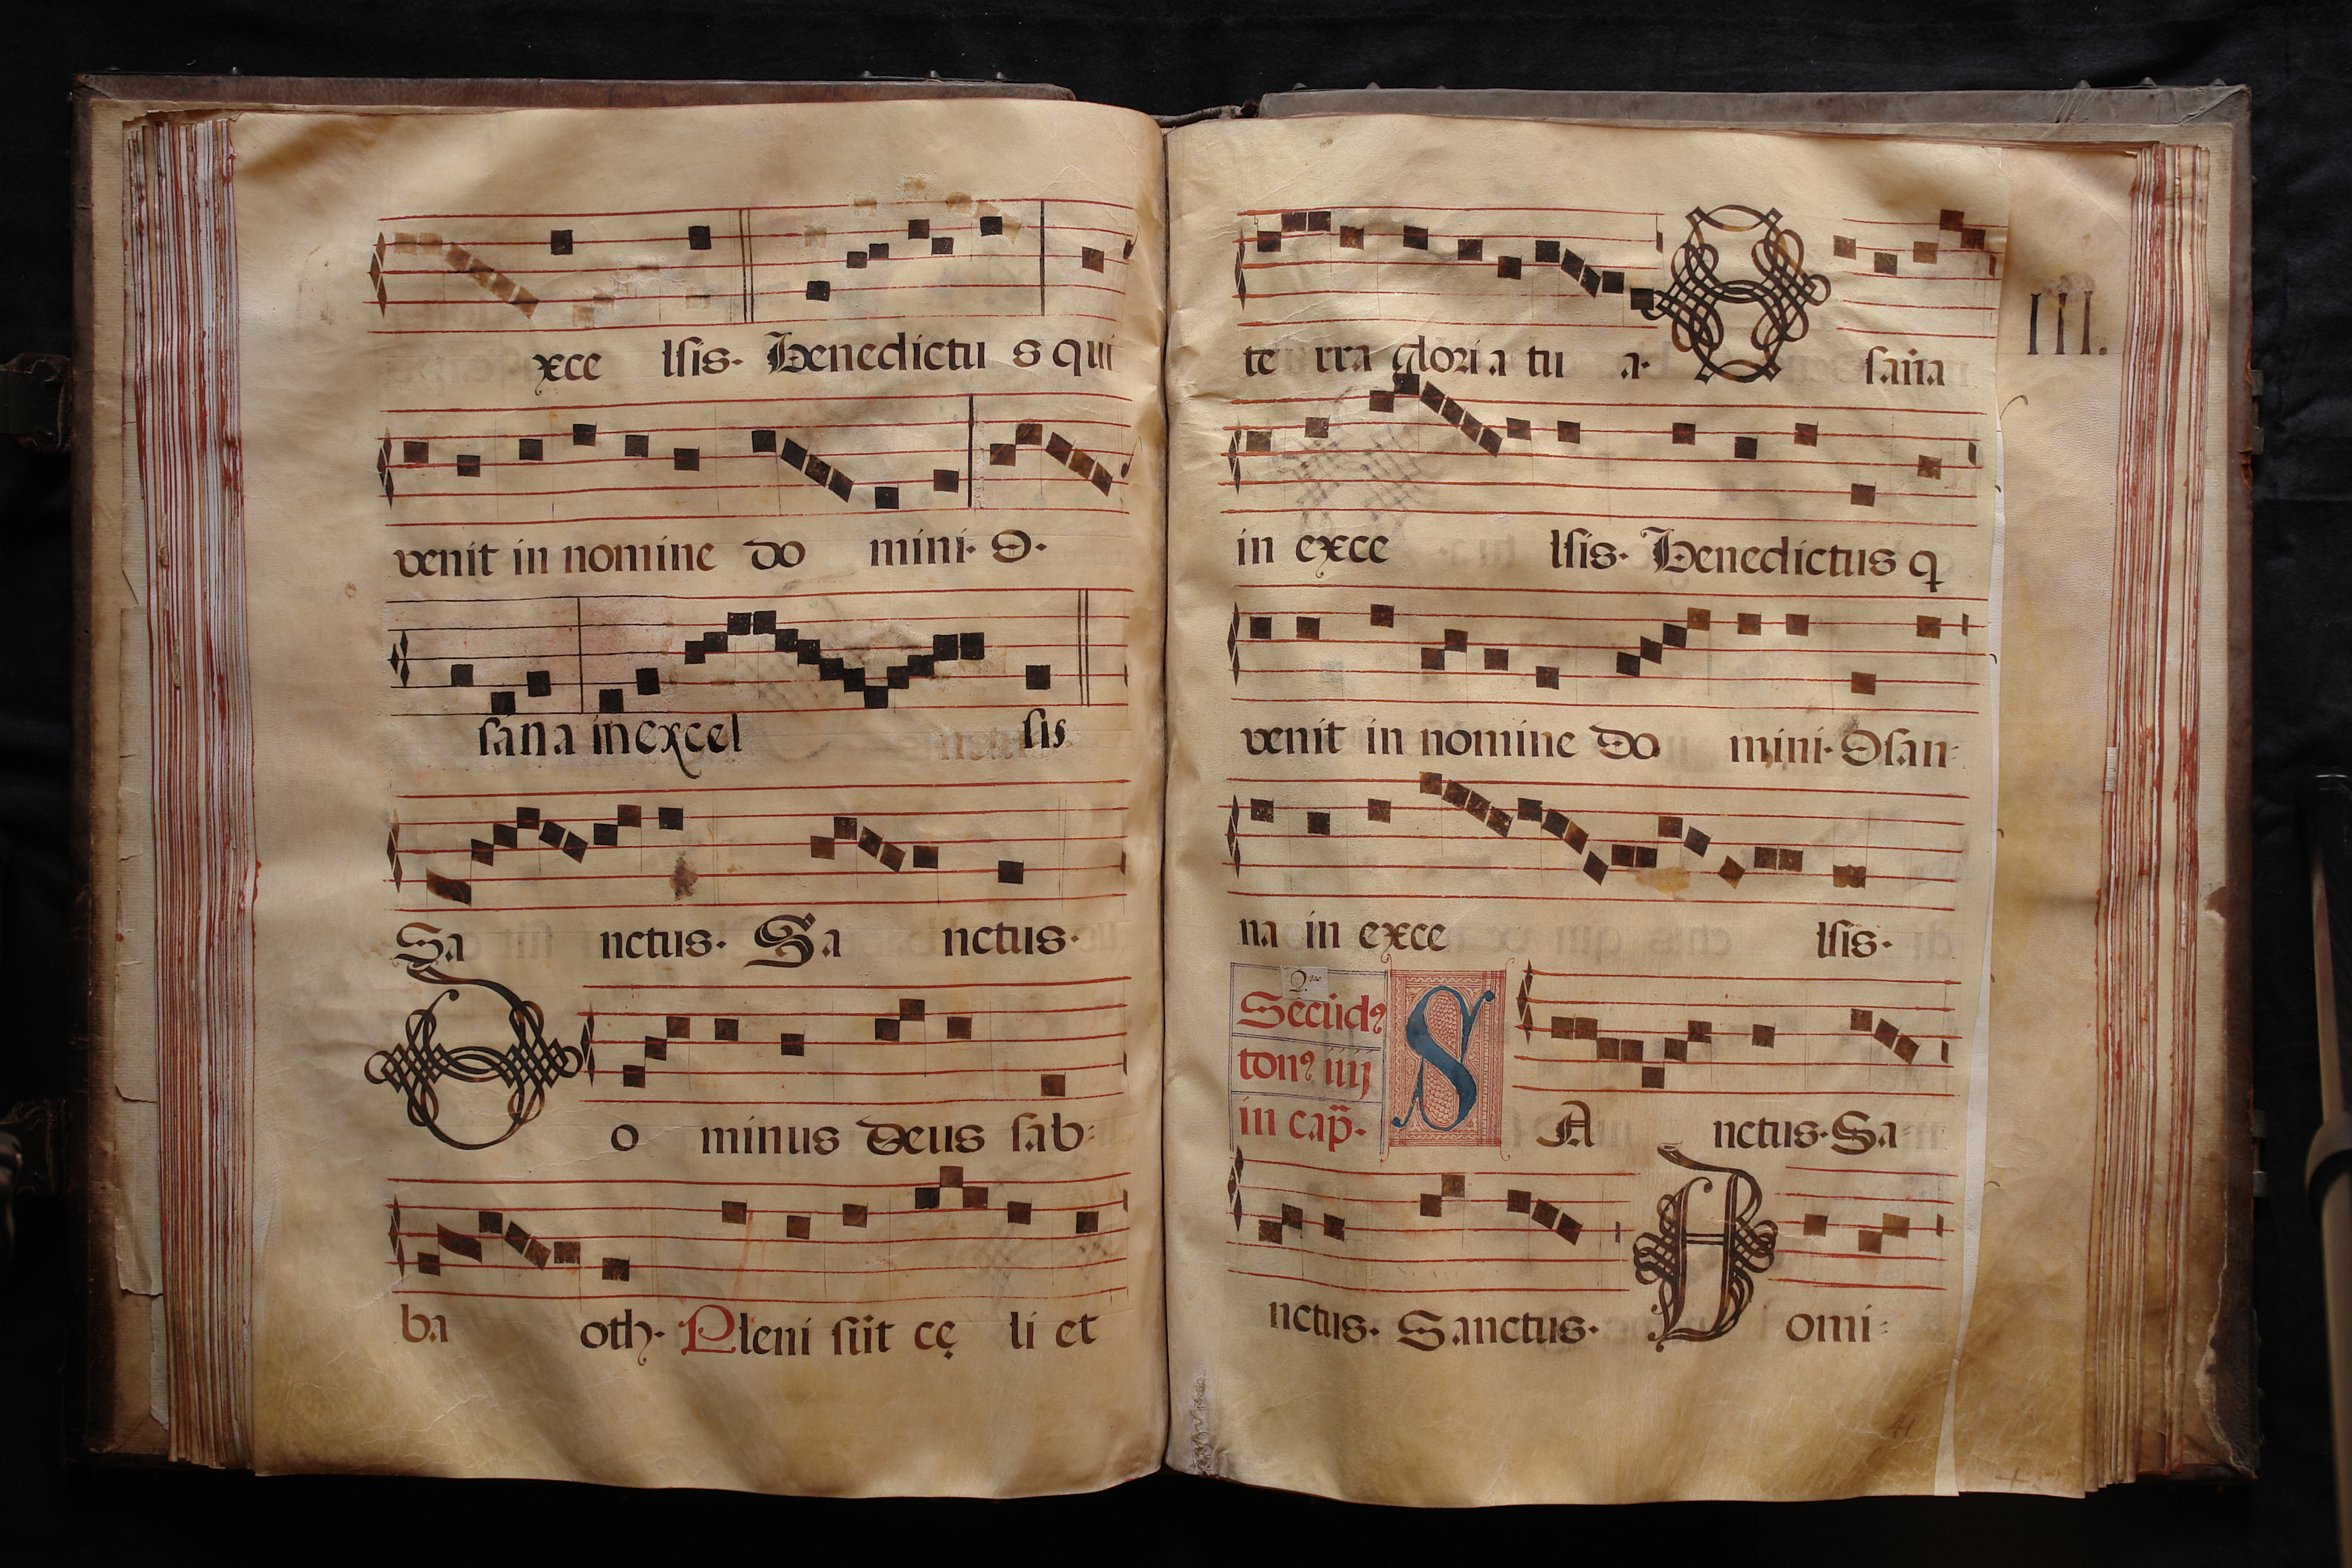 xce lſis· Benedictu s qui
venit in nomine do mini· O·
ſana in excel ſis
Sa nctus· Sa nctus·
Do minus Deus ſab-
ba oth· Pleni ſūt cę li et
III.
te rra gloria tu a· O ſaña
in exce lſis· Benedictus q
venit in nomine Do mini· Oſan-
na in exce lſis·
Secūdꝰ
tonꝰ iiij
in cap̄·
SA nctus· Sa-
nctus· Sanctus· Domi-
41